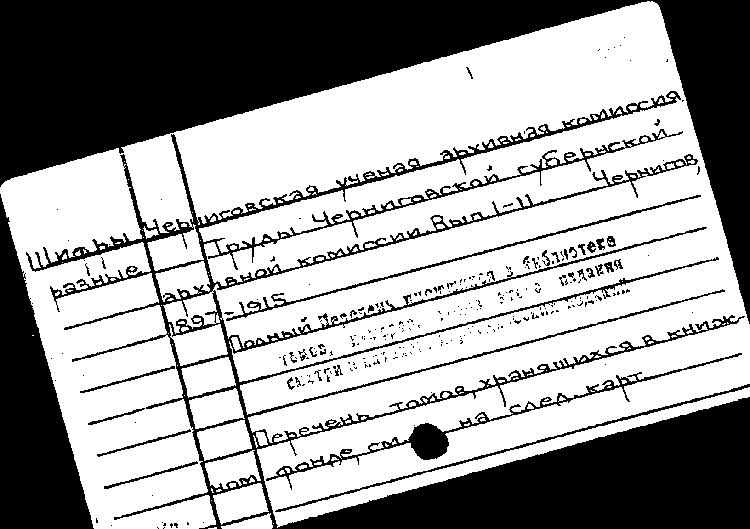 Шифры Черниговская ученая архивная комиссия
разные Труды Черниговской губернской
архивной комиссии. Вып. 1-11 Чернигов,
1897-1915
Полный Перечень имеющихся в библиотеке
томов, номеров, этого издания
смотри в издания"
Перечень томов, хранящихся в книж-
ном фонде, см. на след. карт.